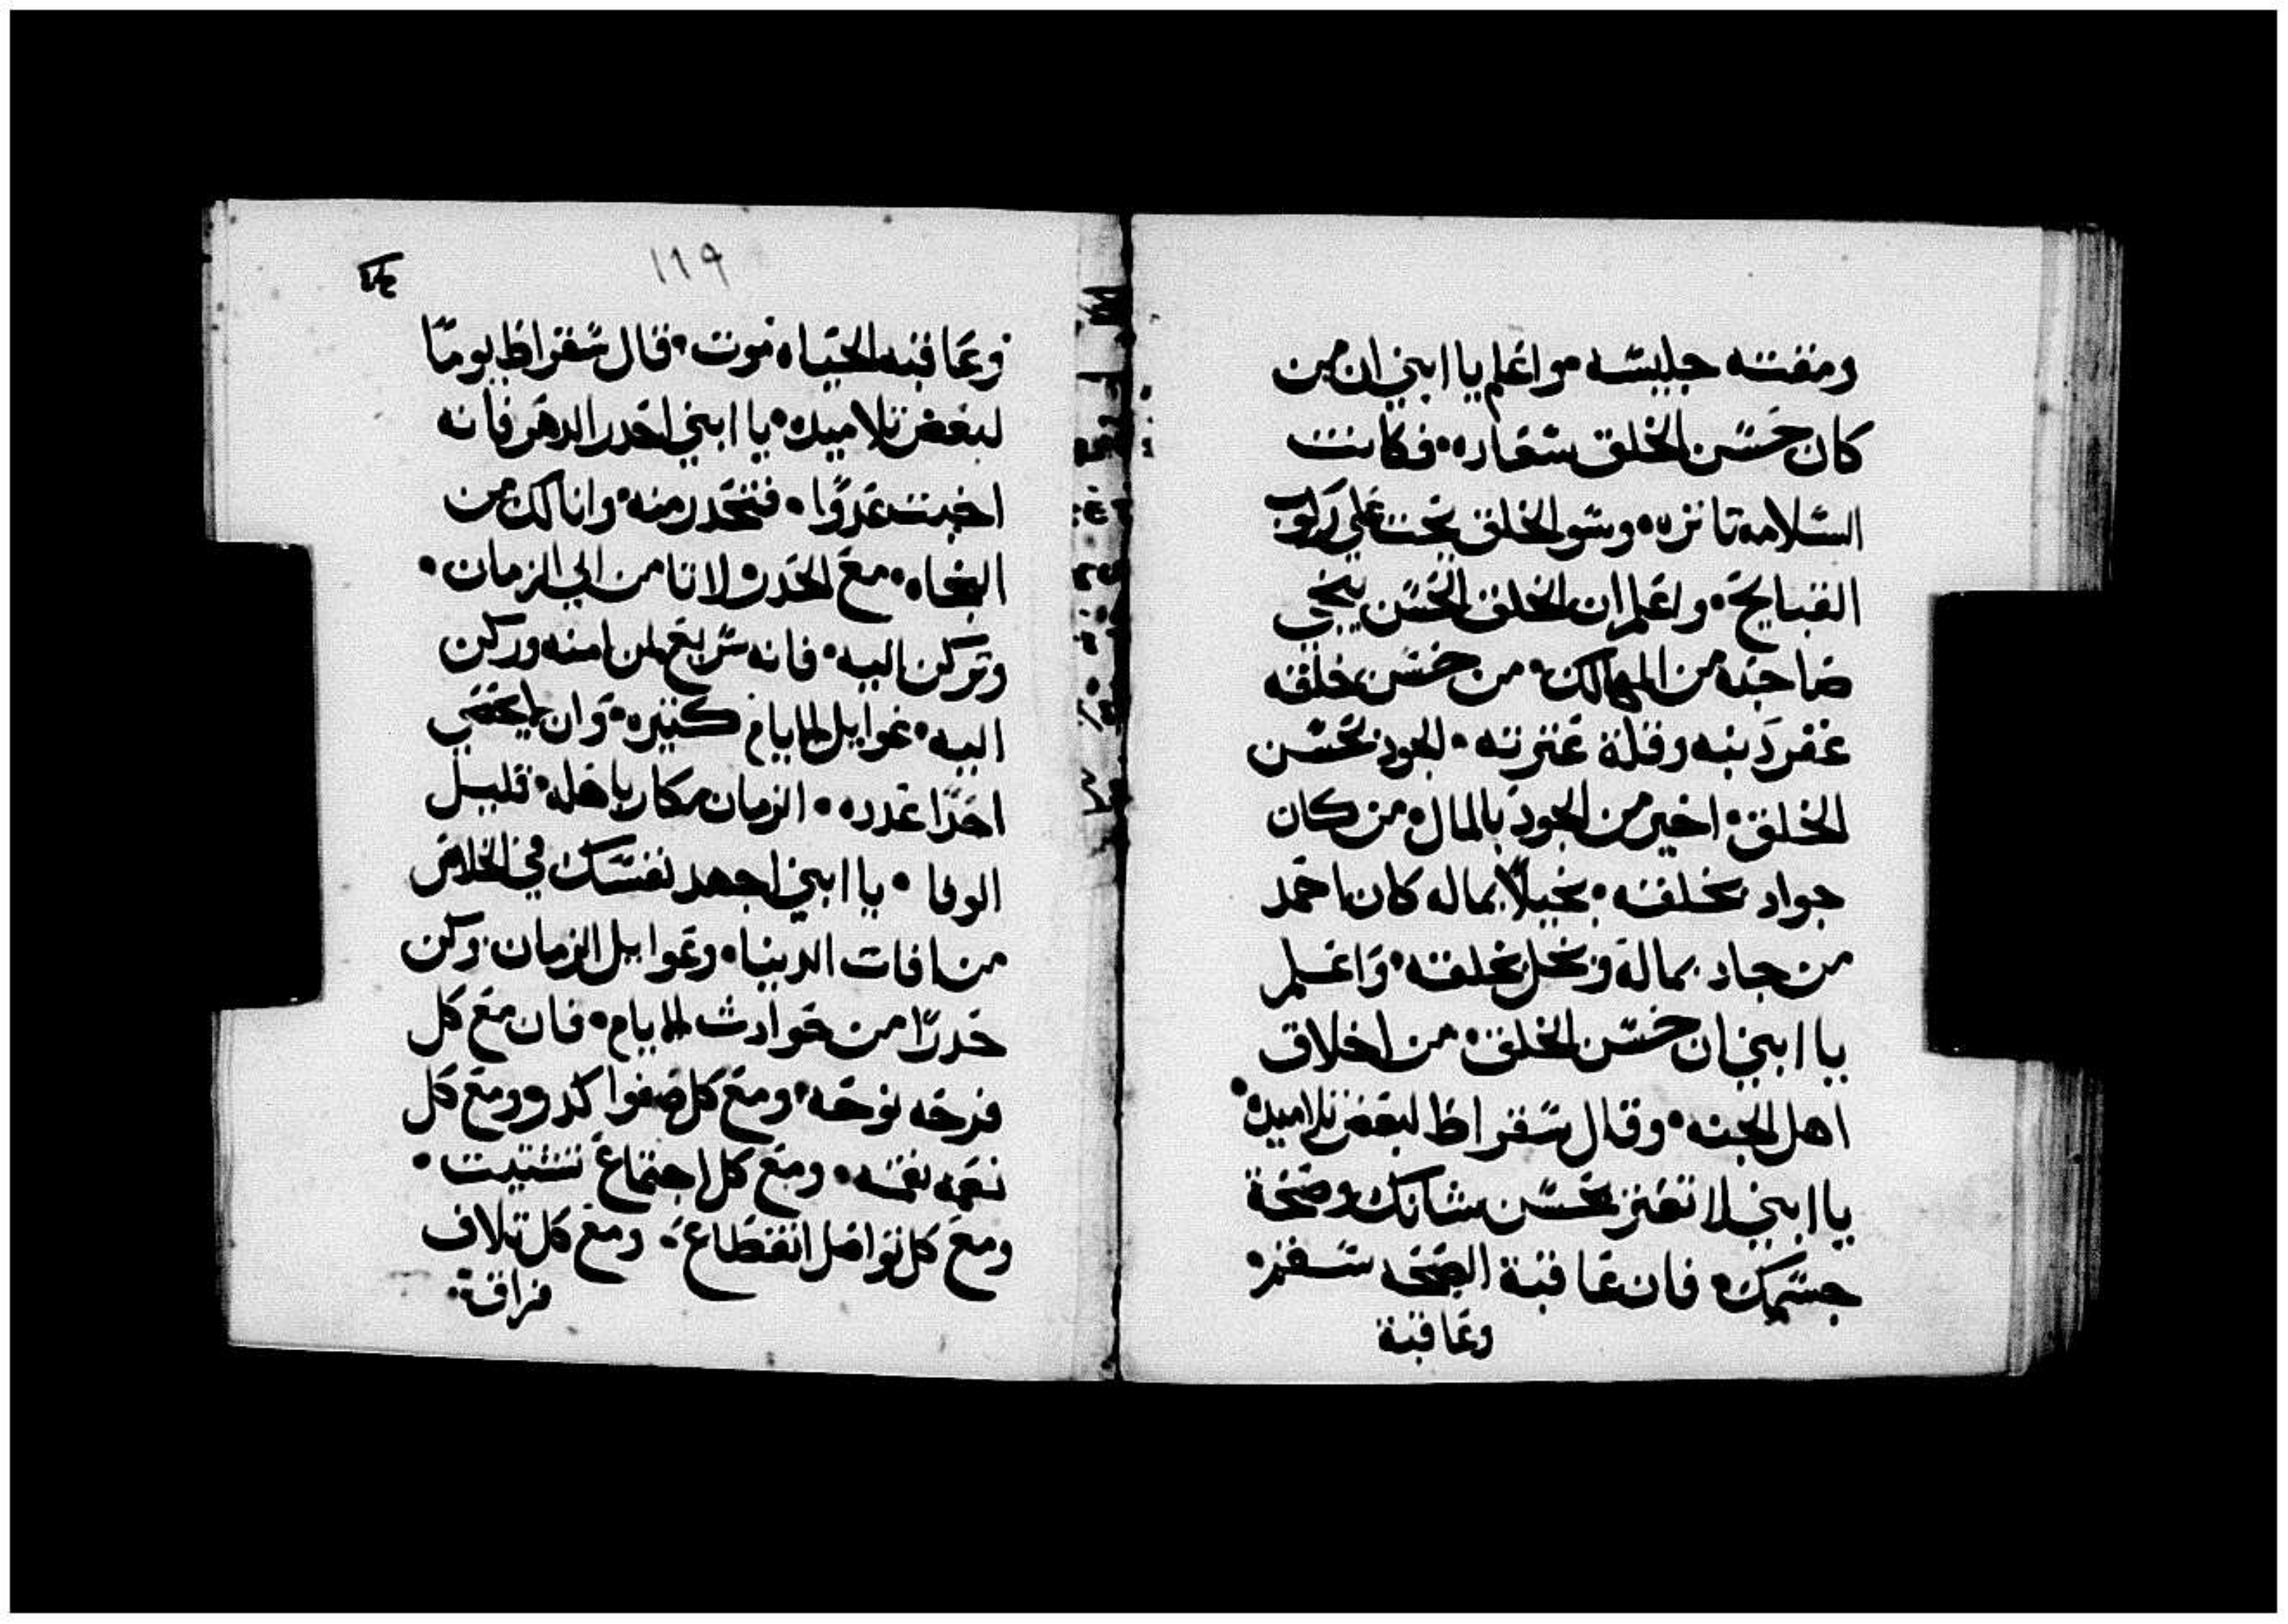 ومقته جليسه واعلم يا ابني ان من
كان حسن الخلق شعاره فكانت
السلامه تاتزره وسو الخلق يحت علي ركوب
القبايح واعلم ان الخلق الحسن ينجي
صاحبه من المهالك من حسن خلقه
غفر دنبه وقلة عترته الجود بحسن
الخلق اخير من الجود بالمال من كان
جواد بخلقه بخيلاً بماله كان احمد
من جاد بماله وبخل بخلقه واعلم
يا ابني ان حسن الخلق من اخلاق
اهل الجنه وقال سقراط لبعض تلاميده
يا ابني لا تغتر بحسن شانك وصحة
جسمك فان عاقبة الصحه سقم
وعاقبة
١١٩
وعاقبه الحياه موت قال سقراط يومًا
لبعض تلاميده يا ابني احدر الدهر فانه
اخبت عدوًا فتحدر منه واناالك من
النجاه مع الحدر ولا تامن الي الزمان
وتركن اليه فانه سريع لمن امنه وركن
اليه غوايل الايام كتيره وان يحصي
احدًا عدده الزمان مكار باهله قليل
الوفا يا ابني اجهد نفسك في الخلاص
من افات الدنيا وغوايل الزمان وكن
حدرًا من حوادث الايام فان مع كل
فرحه نوحه ومع كل صفوا كدر ومع كل
نعمه نقمه ومع كل اجتماع تشتيت
ومع كل تواصل انقطاع ومع كل تلاف
فراقة